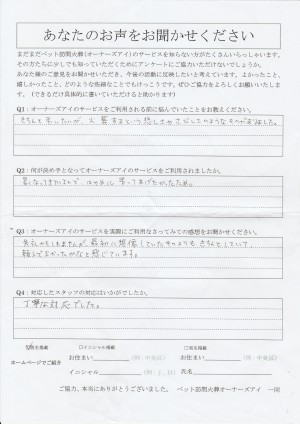 あなたのお声をお聞かせください
まだまだペット訪問火葬(オーナーズアイ)のサービスを知らない方がたくさんいらっしゃいます。
その方たちに少しでも知っていただくためにアンケートにご協力いただけないでしょうか。
あなた様のご意見をお聞かせいただき、今後の活動に反映したいと考えています。よかったこと、
嬉しかったこと、どのような些細なことでもけっこうです。ぜひご協力をよろしくお願いいたしま
す。（できるだけ具体的に書いていただけると助かります）
Q1：オーナーズアイのサービスをご利用される前に悩んでいたことをお教えください。
きちんと弔いたいが、火葬するという悲しさや
がありました。
Q2：何が決め手となってオーナーズアイのサービスをご利用されましたか。
暑くなってきているので、はやめに弔ってあげたかったため。
Q3：オーナーズアイのサービスを実際にご利用なさってみての感想をお聞かせください。
失礼かもしれませんが、最初に想像していたものよりもきちんとしていて、
頼んでよかったかなと感じています。
Q4：対応したスタッフの対応はいかがでしたか。
丁寧な対応でした。
匿名掲載 □イニシャル掲載 □実名掲載
ホームページでご紹介
お住まい （例：中央区） お住まい （例：中央区）
イニシャル （例：J.H） 氏名
ご協力、本当にありがとうございました。 ペット訪問火葬オーナーズアイ 一同